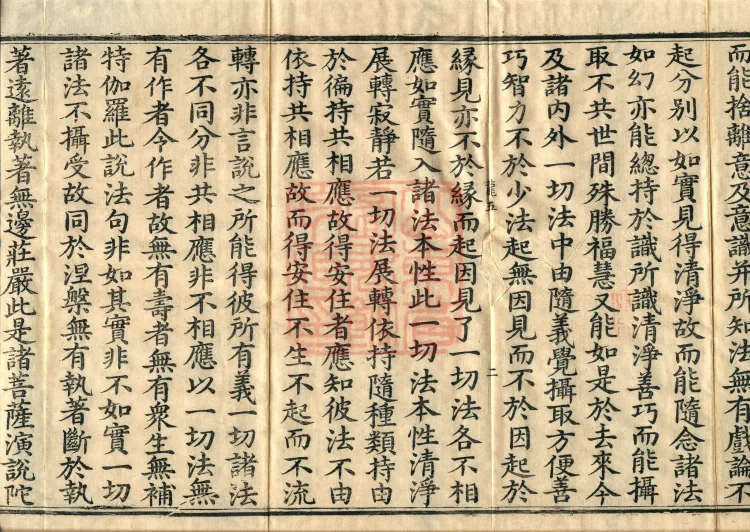 而能捨離意及意識并所知法無有戲論不
起分別以如實見得清淨故而能隨念諸法
如幻亦能總持於識所識清淨善巧而能攝
取不共世間殊勝福慧又能如是於去來今
及諸內外一切法中由隨義覺攝取方便善
巧智力不於少法起無因見而不於因起於
龍五 二
緣見亦不於緣而起因見了一切法各不相
應如實隨入諸法本性此一切法本性清淨
展轉寂靜若一切法展轉依持隨種類持由
於徧持共相應故得安住者應知彼法不由
依持共相應故而得安住不生不起而不流
轉亦非言說之所能得彼所有義一切諸法
各不同分非共相應非不相應以一切法無
有作者令作者故無有壽者無有眾生無補
特伽羅此說法句非如其實非不如實一切
諸法不攝受故同於涅槃無有執著斷於執
著遠離執著無邊莊嚴此是諸菩薩演說陀